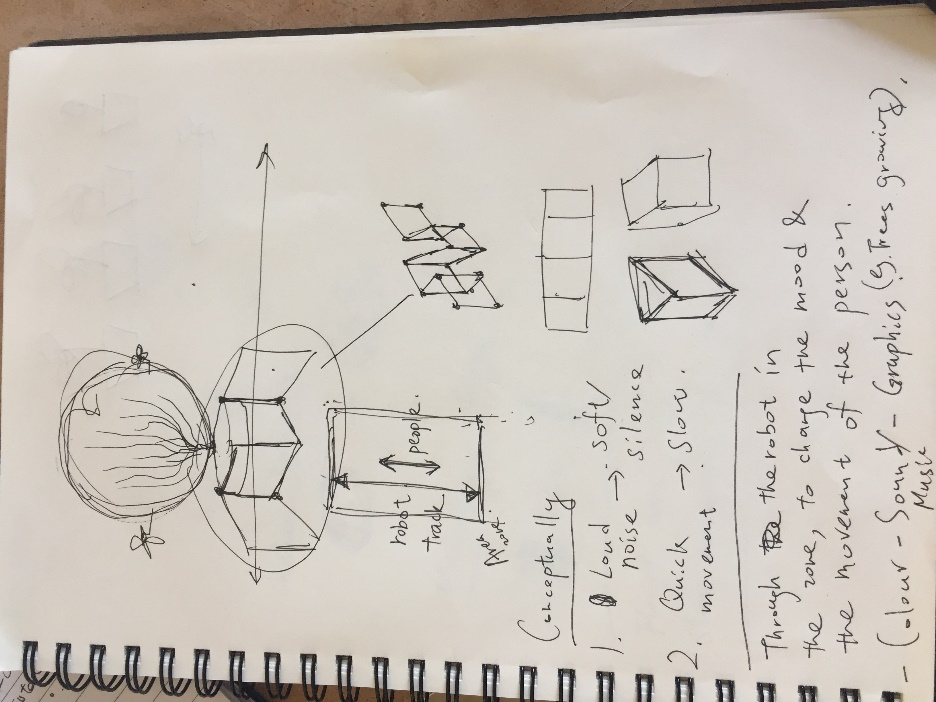 robot
track
people.
Conceptually
1. Loud → soft
noise silence
2. Quick → slow.
movement
Through the robot in
the zone, to change the mood &
the movement of the person.
- Colour - Sound - Graphics (eg. Trees growing).
Music